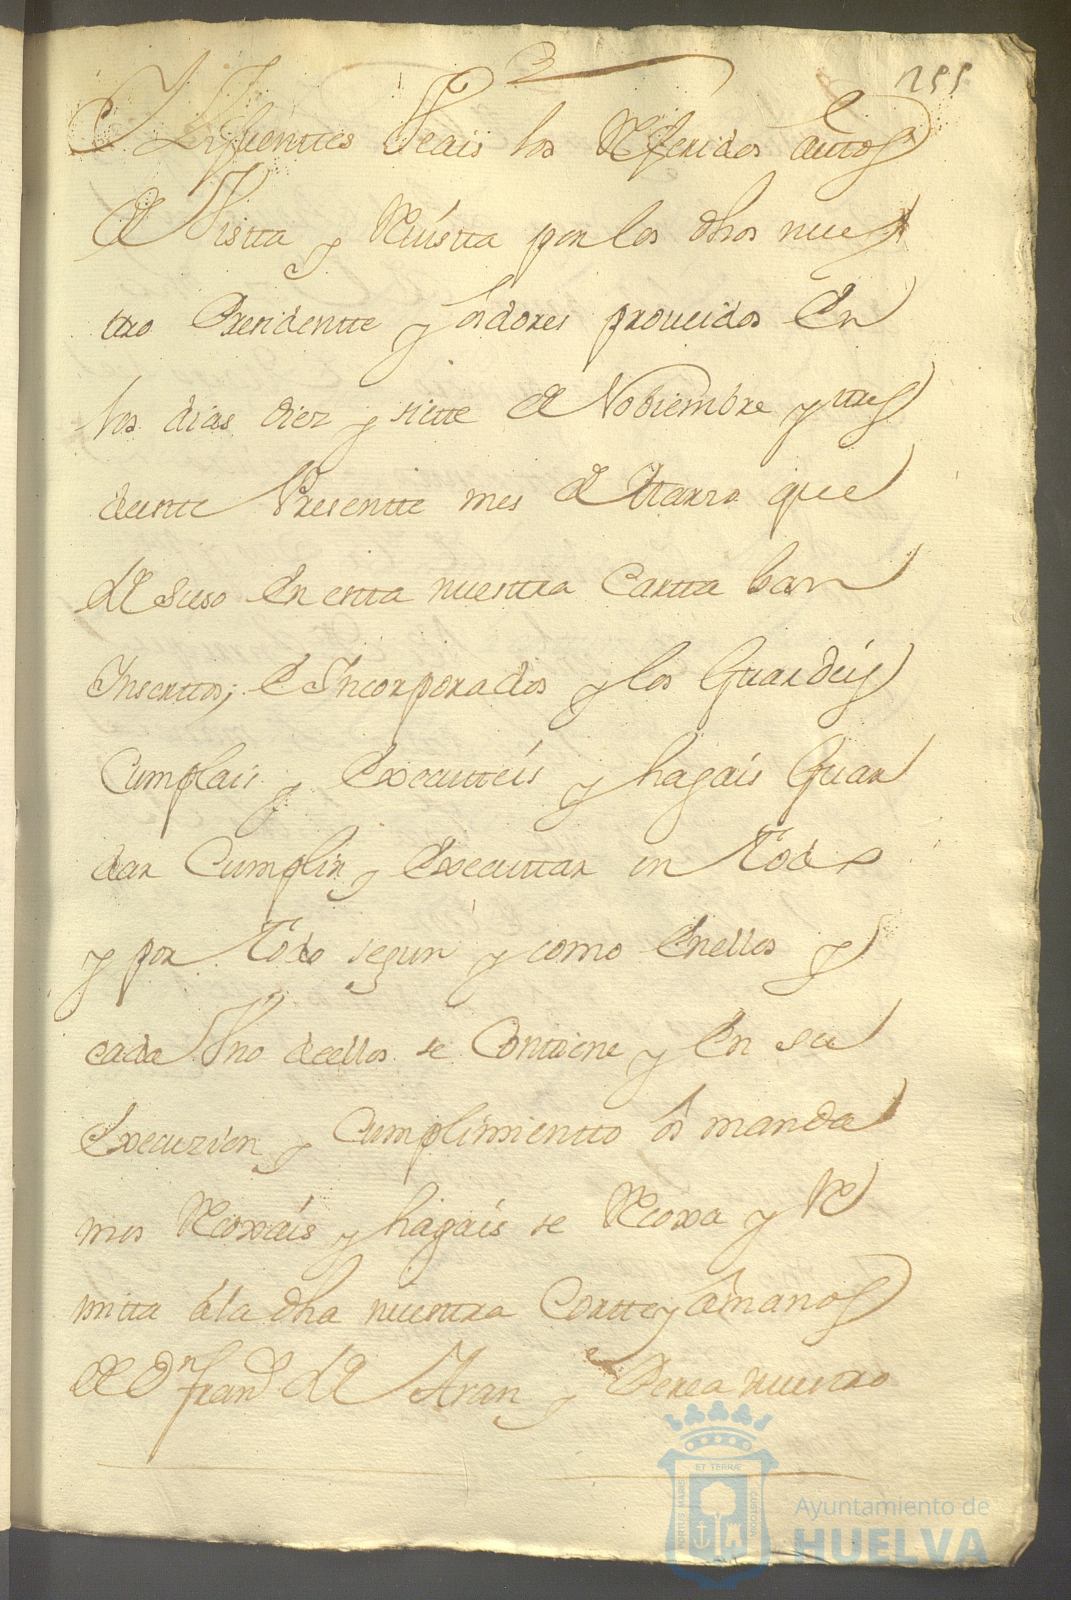 255
siguienttes Veais los Referidos autos
de Vistta y Reuistta por los dhos nues
ttro Presidentte y oidores proueidos en
los dias diez y siette de Nobiembre y ttres
deeste Presentte mes de Marzo que
de suso en estta nuesttra Cartta ban
Inserttos, e Incorporados y los Guardeis
Cumplais y executteis y hagais Guar
dar Cumplir y executtar en Todo
y por Todo segun y como en ellos y
cada Uno de ellos se Contiene y en su
execuzion y Cumplimientto os manda
mos Recoxais y hagais se Recoxa y Re
mitta á la dha nuesttra Cortte y á manos
de Dn Franco de Aran y Perea nuestro
ET TERRÆ
PORTUS MARIS
CUSTODIA
Ayuntamiento de
HUELVA